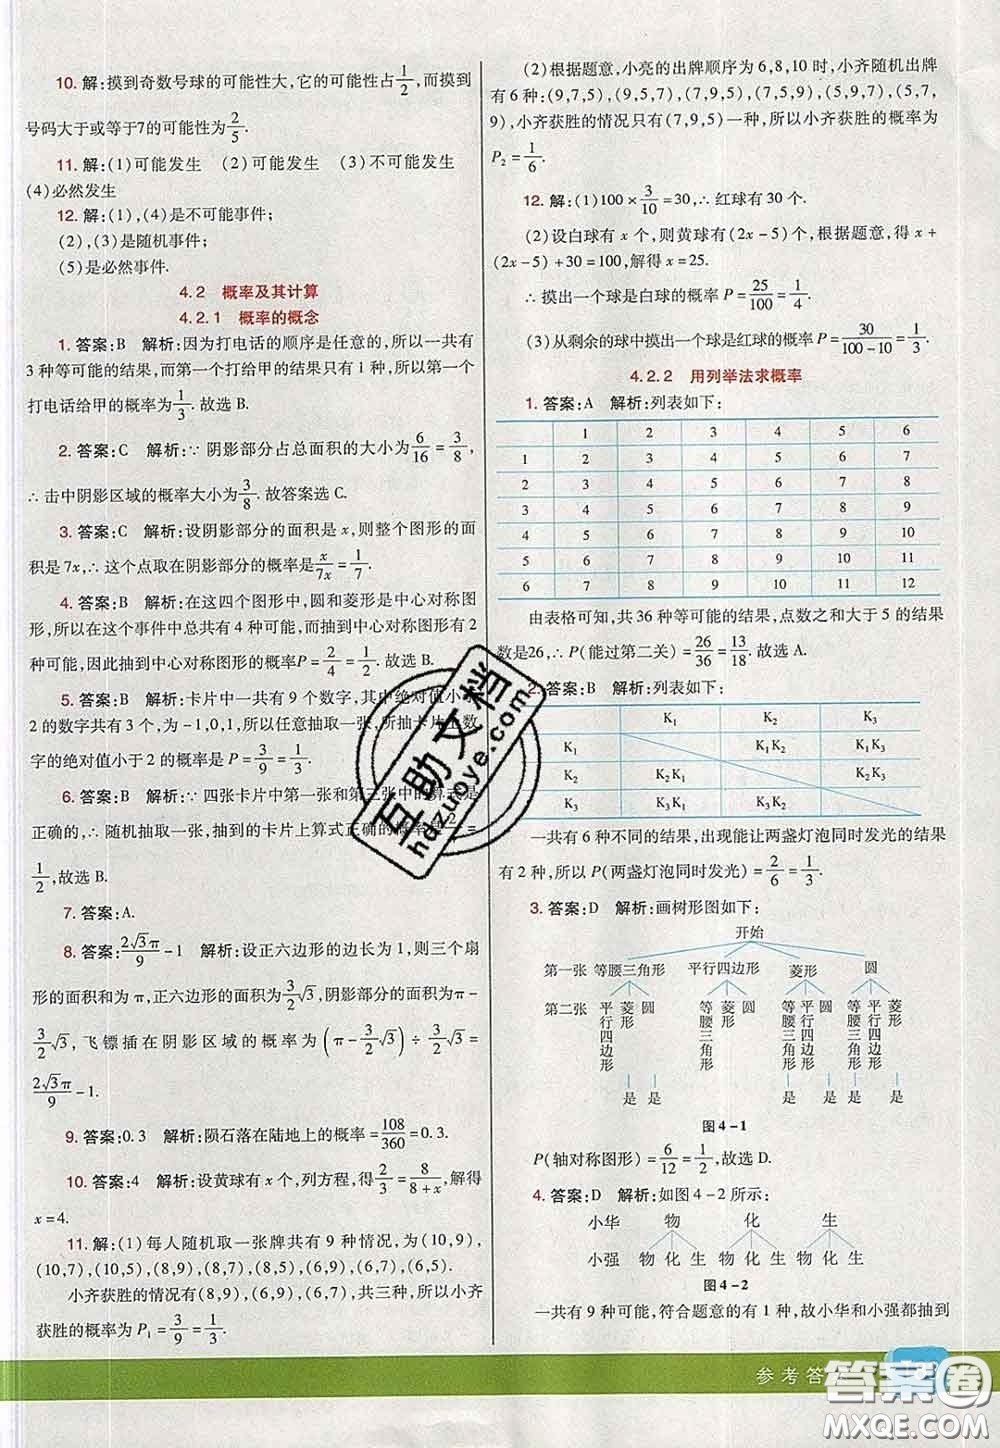 10. 解:摸到奇数号球的可能性大,它的可能性占1/2,而摸到
号码大于或等于7的可能性为2/5.
11. 解:(1)可能发生 (2)可能发生 (3)不可能发生
(4)必然发生
12. 解:(1),(4)是不可能事件;
(2),(3)是随机事件;
(5)是必然事件.
4.2 概率及其计算
4.2.1 概率的概念
1. 答案:B 解析:因为打电话的顺序是任意的,所以一共有
3种等可能的结果,而第一个打给甲的结果只有1种,所以第一个
打电话给甲的概率为1/3.故选B.
2. 答案:C 解析:∵阴影部分占总面积的大小为6/16=3/8,
∴击中阴影区域的概率大小为3/8.故答案选C.
3. 答案:C 解析:设阴影部分的面积是x,则整个图形的面
积是7x,∴这个点取在阴影部分的概率是x/7x=1/7.
4. 答案:B 解析:在这四个图形中,圆和菱形是中心对称图
形,所以在这个事件中总共有4种可能,而抽到中心对称图形有2
种可能,因此抽到中心对称图形的概率P=2/4=1/2.故选B.
5. 答案:B 解析:卡片中一共有9个数字,其中绝对值小于
2的数字共有3个,为-1,0,1,所以任意抽取一张,所抽卡片上数
字的绝对值小于2的概率P=3/9=1/3.
6. 答案:B 解析:∵四张卡片中第一张和第三张中的算式是
正确的,∴随机抽取一张,抽到的卡片上算式正确的概率是2/4=
1/2,故选B.
7. 答案:A.
8. 答案:2√3π/9-1 解析:设正六边形的边长为1,则三个扇
形的面积和为π,正六边形的面积为3/2√3,阴影部分的面积为π-
3/2√3,飞镖插在阴影区域的概率为(π-3/2√3)÷3/2√3=
2√3π/9-1.
9. 答案:0.3 解析:陨石落在陆地上的概率=108/360=0.3.
10. 答案:4 解析:设黄球有x个,列方程,得2/3=8/(8+x),解得
x=4.
11. 解:(1)每人随机取一张牌共有9种情况,为(10,9),
(10,7),(10,5),(8,9),(8,7),(8,5),(6,9),(6,7),(6,5).
小齐获胜的情况有(8,9),(6,9),(6,7),共三种,所以小齐
获胜的概率为P1=3/9=1/3.
(2)根据题意,小亮的出牌顺序为6,8,10时,小齐随机出牌
有6种:(9,7,5),(9,5,7),(7,9,5),(7,5,9),(5,9,7),(5,7,
9),小齐获胜的情况只有(7,9,5)一种,所以小齐获胜的概率为
P2=1/6.
12. 解:(1)100×3/10=30,∴红球有30个.
(2)设白球有x个,则黄球有(2x-5)个,根据题意,得x+
(2x-5)+30=100,解得x=25.
∴摸出一个球是白球的概率P=25/100=1/4.
(3)从剩余的球中摸出一个球是红球的概率P=30/(100-10)=1/3.
4.2.2 用列举法求概率
1. 答案:A 解析:列表如下:
1 2 3 4 5 6
1 2 3 4 5 6 7
2 3 4 5 6 7 8
3 4 5 6 7 8 9
4 5 6 7 8 9 10
5 6 7 8 9 10 11
6 7 8 9 10 11 12
由表格可知,共36种等可能的结果,点数之和大于5的结果
数是26,∴P(能过第二关)=26/36=13/18.故选A.
2. 答案:B 解析:列表如下:
K1 K2 K3
K1 K1K2 K1K3
K2 K2K1 K2K3
K3 K3K1 K3K2
一共有6种不同的结果,出现能让两盏灯泡同时发光的结果
有2种,所以P(两盏灯泡同时发光)=2/6=1/3.
3. 答案:D 解析:画树形图如下:
开始
第一张 等腰三角形 平行四边形 菱形 圆
第二张 平行四边形 菱形 圆 等腰三角形 菱形 圆 等腰三角形 平行四边形 圆 等腰三角形 平行四边形 菱形
是 是 是 是 是 是
图4-1
P(轴对称图形)=6/12=1/2,故选D.
4. 答案:D 解析:如图4-2所示:
小华 物 化 生
小强 物 化 生 物 化 生 物 化 生
图4-2
一共有9种可能,符合题意的有1种,故小华和小强都抽到
参考答
答案圈
MXQE.COM
互助文档
hdzuoye.com